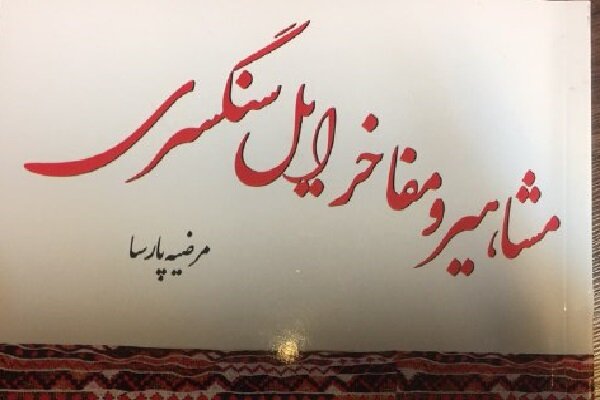 مشاهیر و مفاخر ایل سنگسری
مرضیه پارسا